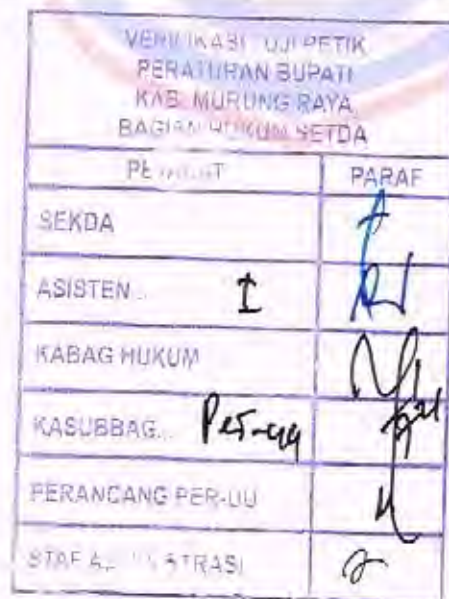 VERIFIKASI UJI PETIK
PERATURAN BUPATI
KAB. MURUNG RAYA
BAGIAN HUKUM SETDA
PEJABAT PARAF
SEKDA
ASISTEN.. I
KABAG HUKUM
KASUBBAG...
PERANCANG PER-UU
STAF ADMINISTRASI